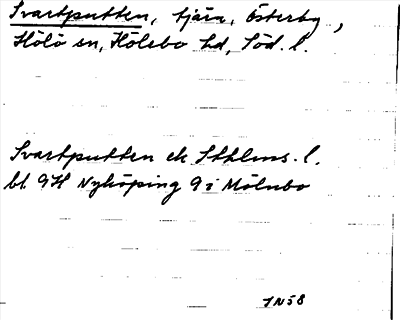 Svartputten, tjärn, Österby,
Hölö sn, Hölebo hd, Söd. l.
Svartputten ek Sthlms. l.
bl 9H Nyköping 9 i Mölnbo
IN58